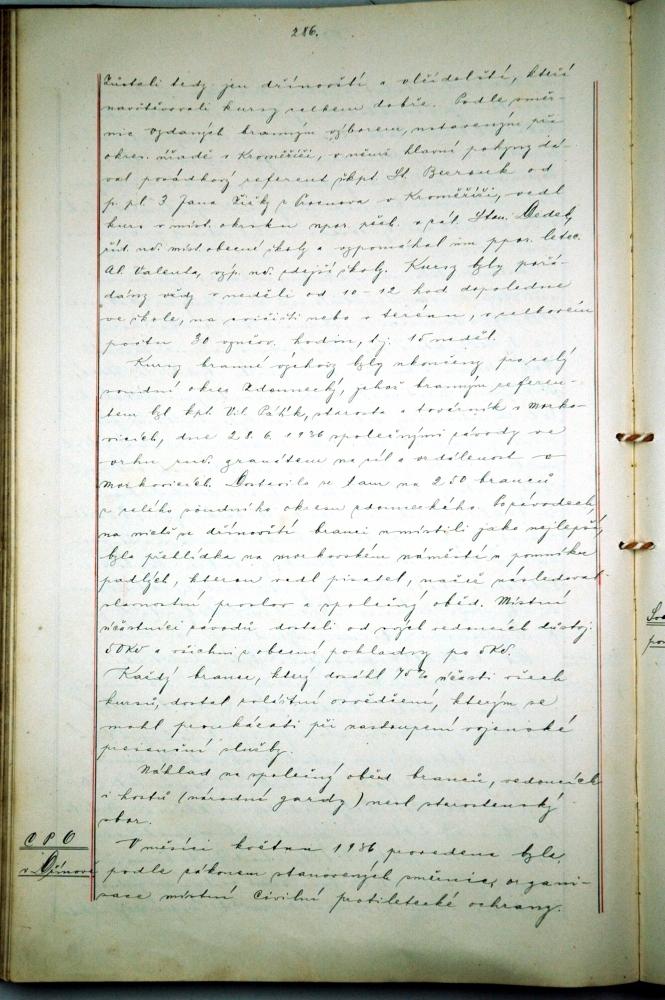 286.
Zůstali tedy jen dřínovští a vlčídolští, kteří
navštěvovali kursy celkem dobře. Podle směr-
nic vydaných branným výborem, ustaveným při
okres. úřadě v Kroměříži, v němž hlavní pokyny dá-
val pořádkový referent škpt. St. Berouk od
p. pl. 3 Jana Žižky z Trocnova v Kroměříži, vedl
kurs v míst. okrsku npor. pěch. v zál. Stan. Dedek,
říd. uč. míst. obecné školy a vypomáhal mu ppor. letec.
Al. Valenta, výp. uč. zdejší školy. Kursy byly pořá-
dány vždy v neděli od 10–12 hod dopoledne
ve škole, na cvičišti nebo v terénu, v celkovém
počtu 30 vyučov. hodin, tj. 15 neděl.
Kursy branné výchovy byly ukončeny pro celý
soudní okres Zdounecký, jehož branným referen-
tem byl kpt. Vil. Páták, starosta a továrník v Morko-
vicích, dne 28. 6. 1936 společnými závody ve
vrhu ruč. granátem na cíl a vzdálenost v
Morkovicích. Dostavilo se tam na 250 branců
z celého soudního okresu zdouneckého. Po závodech,
na nichž se dřínovští branci umístili jako nejlepší,
byla přehlídka na morkovském náměstí u pomníku
padlých, kterou vedl pisatel, načež následoval
slavnostní proslov a společný oběd. Místní
účastníci závodů dostali od svých vedoucích důstoj.
50 Kč a všichni z obecní pokladny po 5 Kč.
Každý branec, který dosáhl 75% účasti všech
kursů, dostal zvláštní osvědčení, kterým se
mohl prokázati při nastoupení vojenské
presenční služby.
Náklad na společný oběd branců, vedoucích
i hostů (národní gardy) nesl starostenský
sbor.
C P O
v Dřínově
V měsíci květnu 1936 provedena byla
podle zákonem stanovených směrnic organi-
sace místní Civilní protiletecké ochrany.